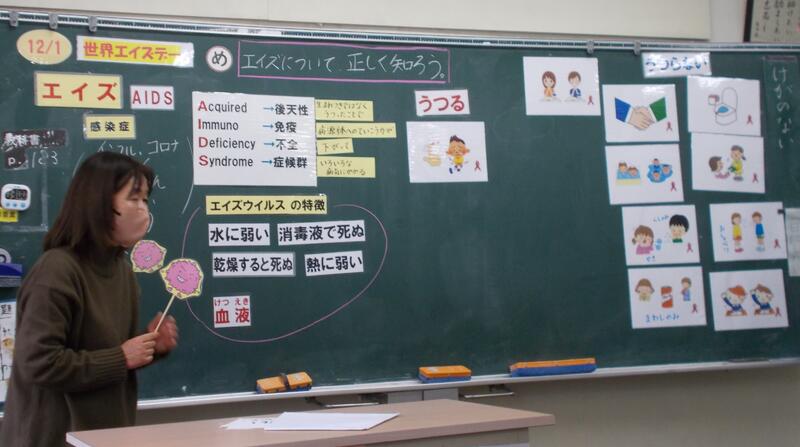 12/1
世界エイズデー
め
エイズについて 正しく知ろう。
エイズ
AIDS
感染症
教科書!!
P.123
コロナ
Acquired →後天性
Immuno →免疫
Deficiency →不全
Syndrome →症候群
生まれつきではなく
うつったことで
下がって
いろいろな
病気にかかる
エイズウイルス の特徴
水に弱い
消毒液で死ぬ
乾燥すると死ぬ
熱に弱い
けつ えき
血 液
うつる
うつらない
けがのない